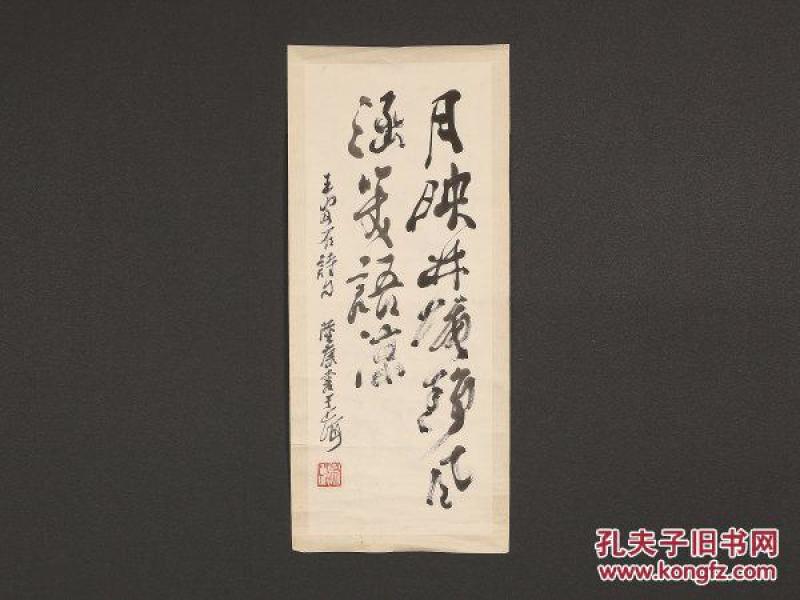 月映林塘静风
涵笑语凉
王安石詩句 陸康書于上海
孔夫子旧书网
www.kongfz.com